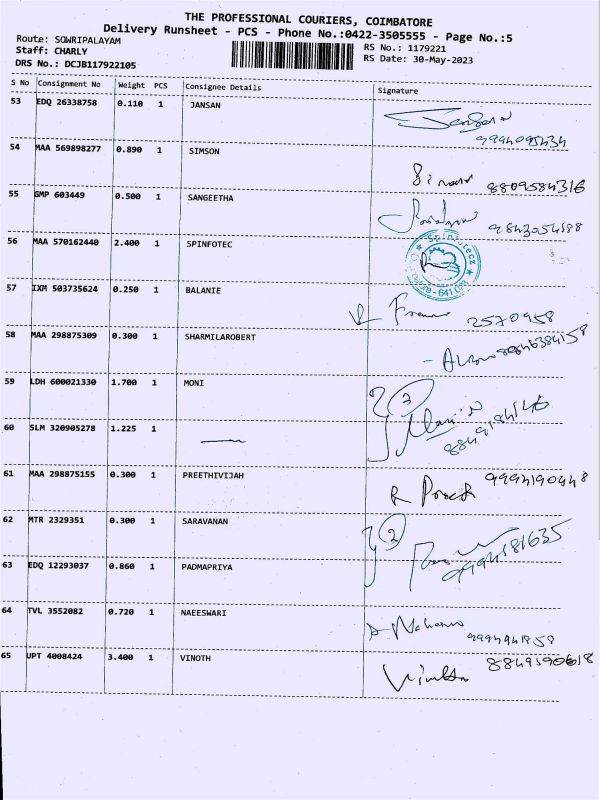 THE PROFESSIONAL COURIERS, COIMBATORE
Delivery Runsheet - PCS - Phone No.:0422-3505555 - Page No.:5
Route: SOWRIPALAYAM
RS No.: 1179221
Staff: CHARLY
RS Date: 30-May-2023
DRS No.: DCJB117922105
S No Consignment No Weight PCS Consignee Details Signature
53 EDQ 26338758 0.110 1 JANSAN
9994095434
54 MAA 569898277 0.890 1 SIMSON
8809584316
55 GMP 603449 0.500 1 SANGEETHA
9843054198
56 MAA 570162440 2.400 1 SPINFOTEC
57 IXM 503735624 0.250 1 BALANIE
2570958
58 MAA 298875309 0.300 1 SHARMILAROBERT
59 LDH 600021330 1.700 1 MONI
2
60 SLM 320905278 1.225 1
61 MAA 298875155 0.300 1 PREETHIVIJAH
9994190448
62 MTR 2329351 0.300 1 SARAVANAN
2
9994181635
63 EDQ 12293037 0.860 1 PADMAPRIYA
64 TVL 3552082 0.720 1 NAEESWARI
65 UPT 4008424 3.400 1 VINOTH
8849590618